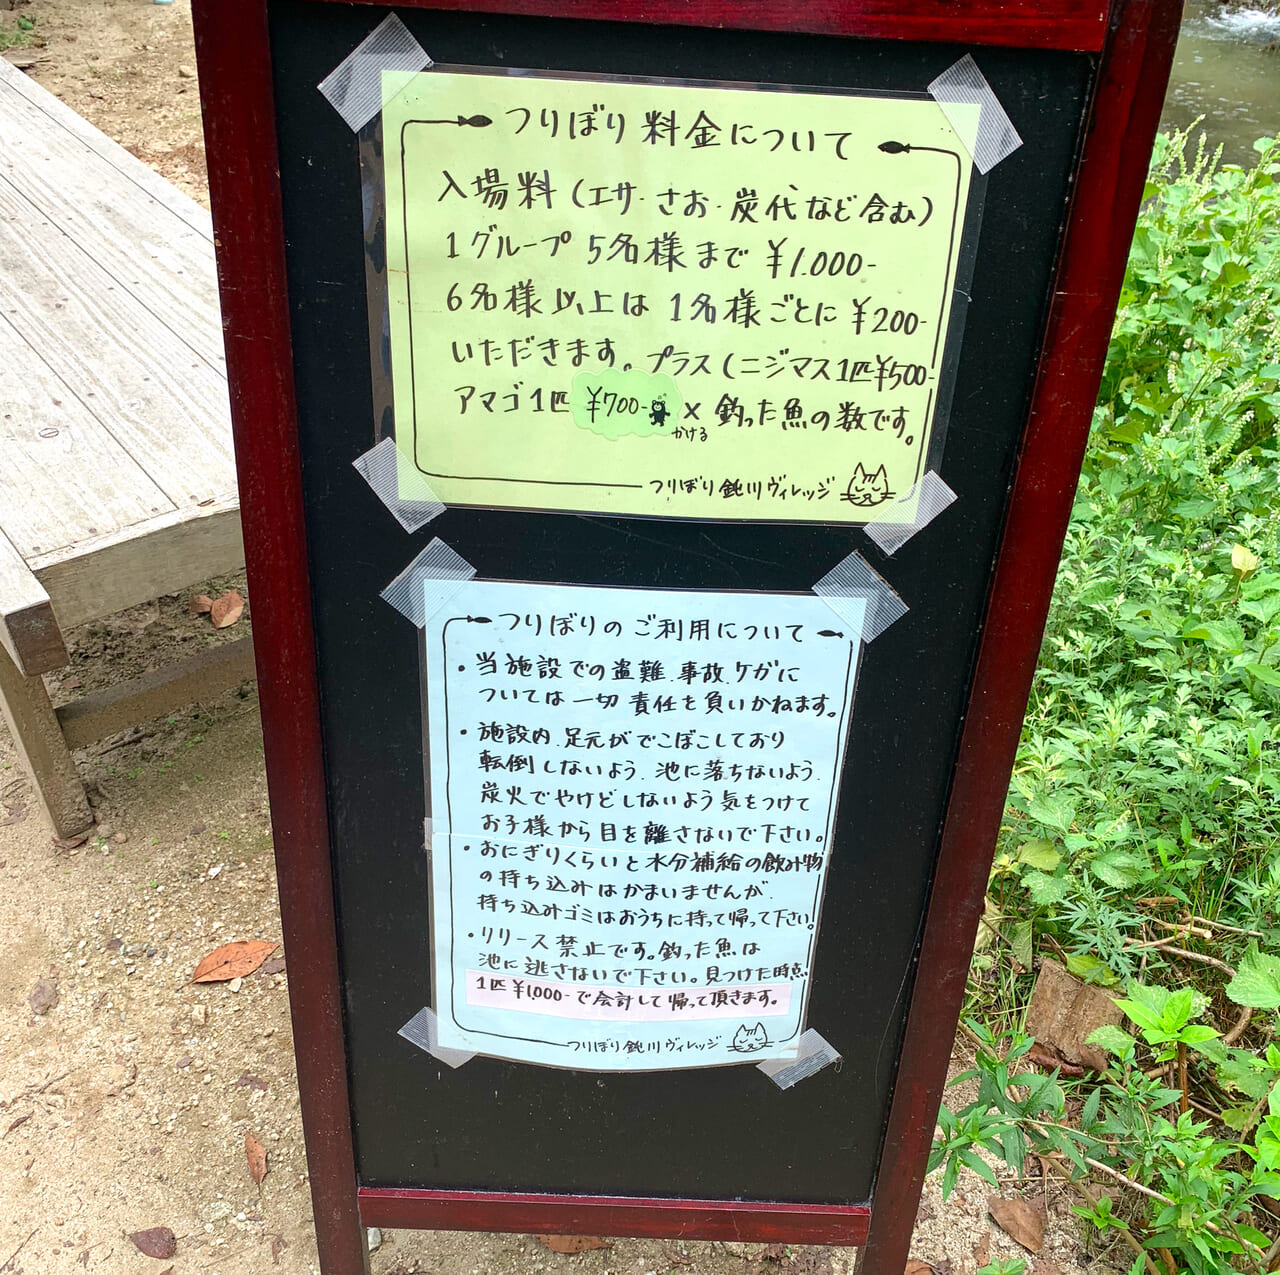 つりぼり料金について
入場料(エサ・さお・炭代など含む)
1グループ 5名様まで ¥1.000-
6名様以上は 1名様ごとに ¥200-
いただきます。プラス(ニジマス1匹¥500-
アマゴ1匹 ¥700- × 釣った魚の数です。
かける
つりぼり鈍川ヴィレッジ
つりぼりのご利用について
・当施設での盗難、事故、ケガに
ついては一切責任を負いかねます。
・施設内、足元がでこぼこしており
転倒しないよう、池に落ちないよう、
炭火でやけどしないよう気をつけて
お子様から目を離さないで下さい。
・おにぎりくらいと水分補給の飲み物
の持ち込みはかまいませんが、
持ち込みゴミはおうちに持って帰って下さい!
・リリース禁止です。釣った魚は
池に逃さないで下さい。見つけた時点
1匹¥1,000-で会計して帰って頂きます。
つりぼり鈍川ヴィレッジ